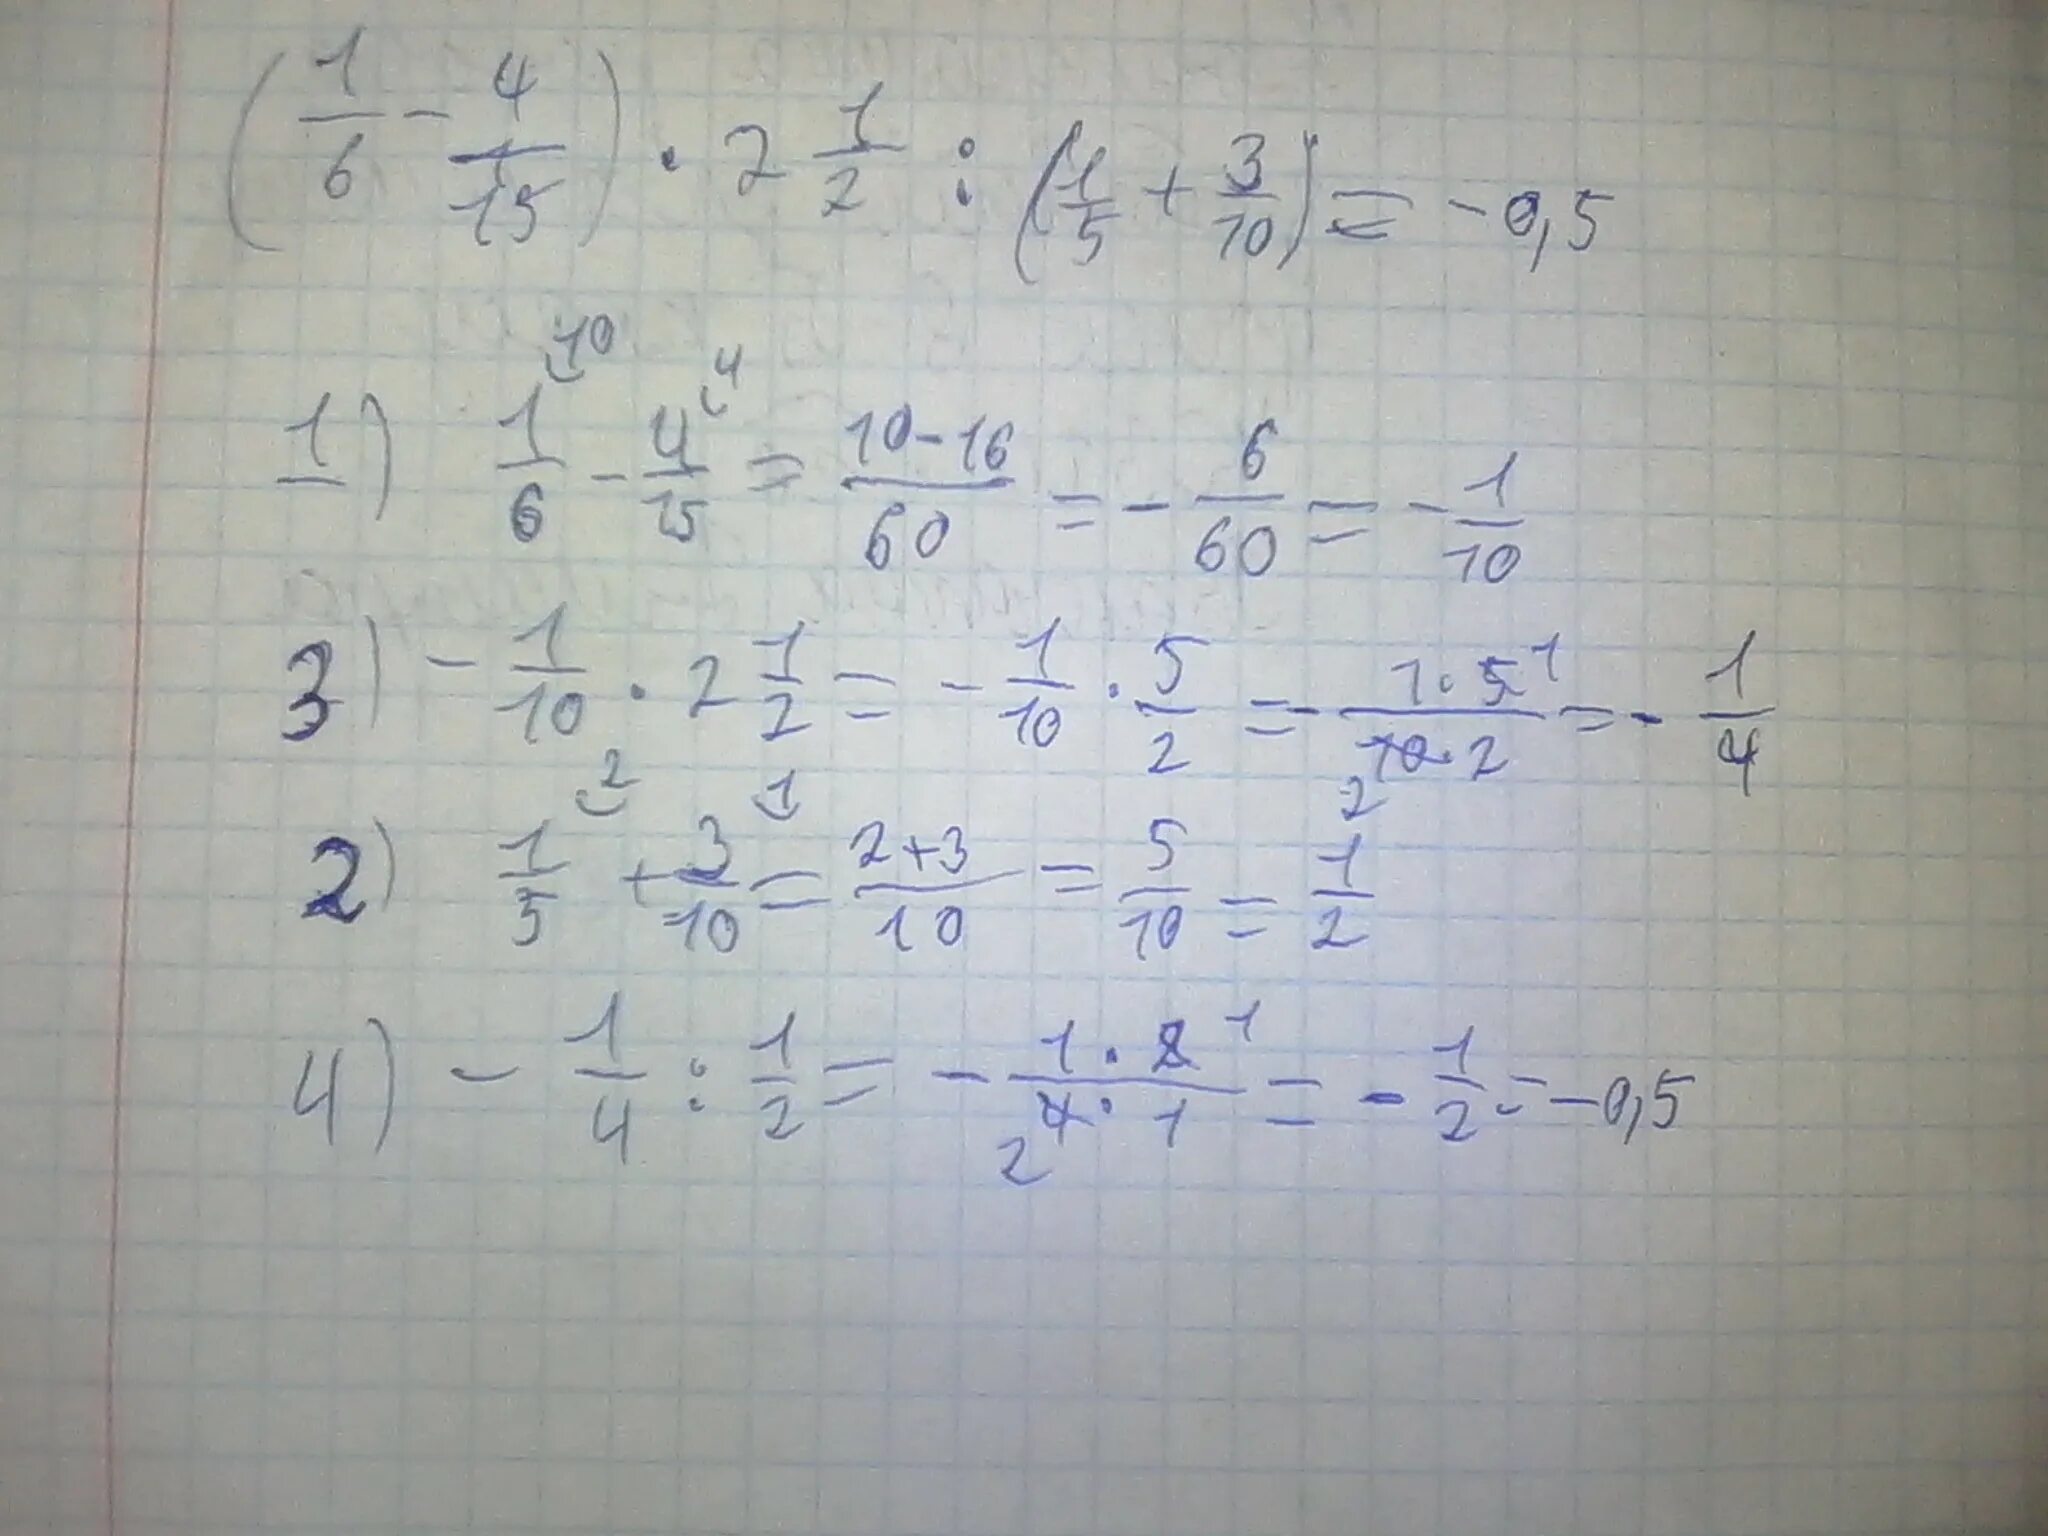 (1/6 - 4/15) · 2 1/2 : (1/5 + 3/10) = -0,5
1) 1/6 ^10 - 4/15 ^4 = (10-16)/60 = - 6/60 = - 1/10
3) - 1/10 · 2 1/2 = - 1/10 · 5/2 = - (1·5 ^1)/(2 10·2) = - 1/4
2) 1/5 ^2 + 3/10 ^1 = (2+3)/10 = 5/10 = 1/2
4) - 1/4 : 1/2 = - (1·2 ^1)/(2 4·1) = - 1/2 = -0,5